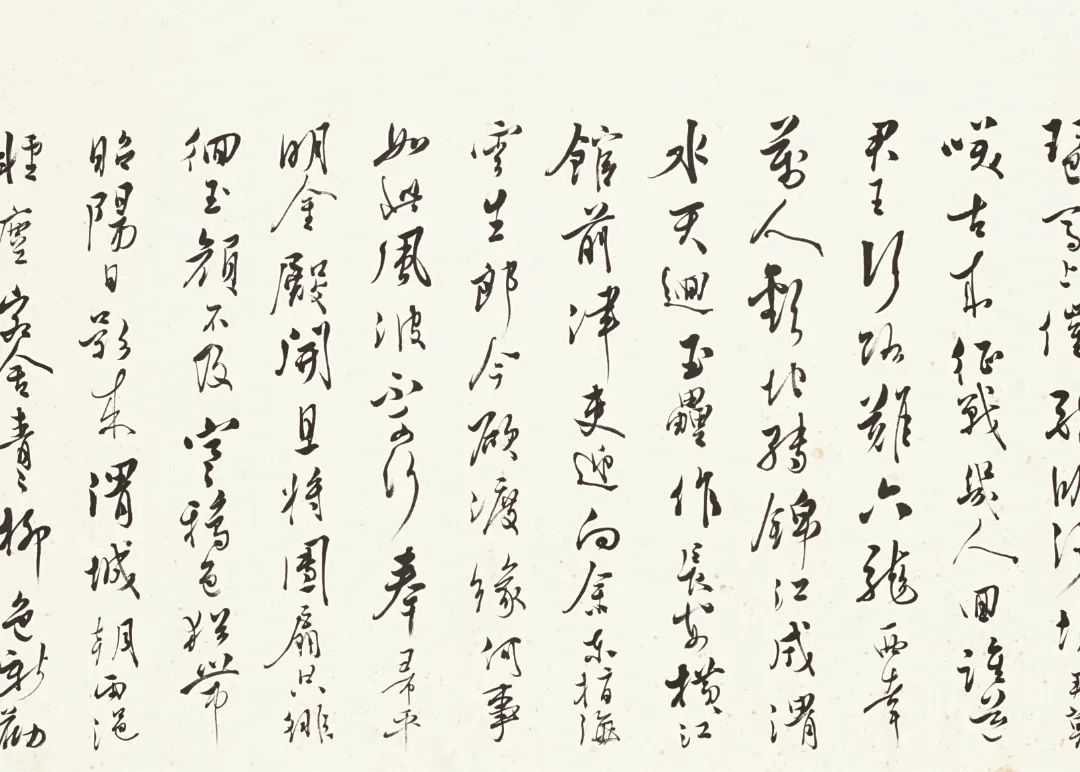 琶馬上催醉卧沙場君莫
咲古來征戰幾人回誰道
君王行路難六龍西幸
萬人歡地轉錦江成渭
水天迴玉壘作長安橫江
館前津吏迎向余東指海
雲生郎今欲渡緣何事
如此風波不可行奉帚平
明金殿開且將團扇共徘
徊玉顏不及寒鴉色猶帶
昭陽日影來渭城朝雨浥
輕塵客舍青々柳色新勸